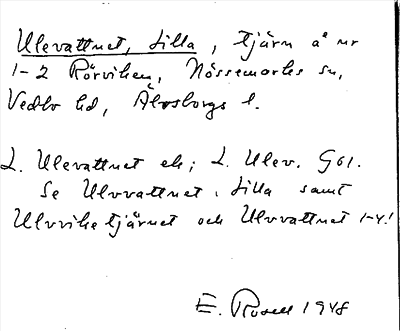 Ulevattnet, Lilla, tjärn å nr
1-2 Rörviken, Nössemarks sn,
Vedbo hd, Älvsborgs l.
L. Ulevattnet ek; L. Ulev. G61.
Se Ulvvattnet, Lilla samt
Ulvviketjärnet och Ulvvattnet 1-4!
E. Rosell 1948